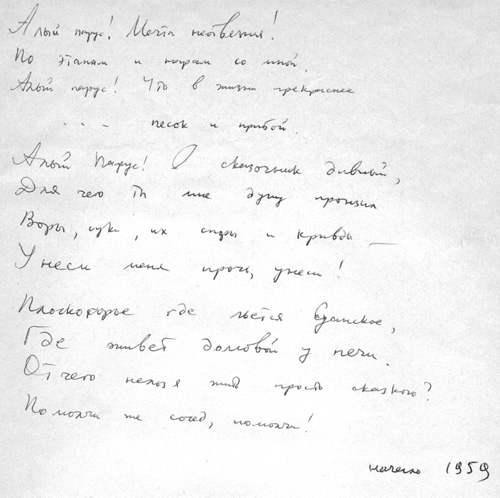 Алый парус! Мечта неотвязная!
По этапам и нарам со мной.
Алый парус! Что в жизни прекраснее
. . . - песок и прибой.
Алый Парус! О сказочник дивный,
Для чего ты мне душу пронзил
Воры, суки, их и кривды —
Унеси меня прочь, унеси!
Плоскогорье где льется
Где живет домовой у печи.
Отчего нельзя жить просто сказкою?
Помолчи же сосед, помолчи!
начало 1959